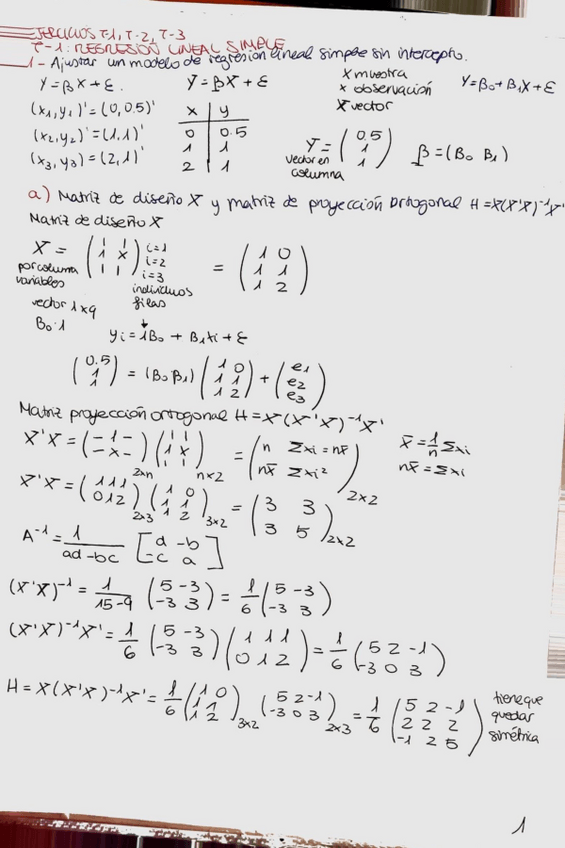 EJERCICIOS T-1, T-2, T-3
T-1: REGRESIÓN LINEAL SIMPLE
1- Ajustar un modelo de regresión lineal simple sin intercepto.
Y=βX+ε. Y=βX+ε x muestra Y=β₀+β₁X+ε
x observación
X vector
(x₁,y₁)'=(0,0.5)' x | y
(x₂,y₂)'=(1,1)' 0 | 0.5
(x₃,y₃)=(2,1)' 1 | 1
2 | 1
Y= (0.5 1 1) β=(β₀ β₁)
vector en
columna
a) Matriz de diseño X y matriz de proyección ortogonal H=X(X'X)⁻¹X'
Matriz de diseño X
X = (1 1 1 x 1 1) i=1 i=2 i=3 = (1 0 1 1 1 2)
por columna
variables
individuos
filas
vector 1×q
β₀·1
yi=1β₀+β₁xi+ε
(0.5 1) = (β₀ β₁) (1 0 1 1 1 2) + (e₁ e₂ e₃)
Matriz proyección ortogonal H=X(X'X)⁻¹X'
X'X = (-1- -x-)2xn (1 1 1 x 1 1)n×2 = (n Σxi=nx̄ nx̄ Σxi²)2×2 x̄=1/n Σxi
nx̄=Σxi
X'X = (1 1 1 0 1 2)2×3 (1 0 1 1 1 2)3×2 = (3 3 3 5)2×2
A⁻¹= 1/ad-bc [d -b -c a]
(X'X)⁻¹ = 1/15-9 (5 -3 -3 3) = 1/6 (5 -3 -3 3)
(X'X)⁻¹X' = 1/6 (5 -3 -3 3) (1 1 1 0 1 2) = 1/6 (5 2 -1 -3 0 3)
H=X(X'X)⁻¹X' = 1/6 (1 0 1 1 1 2)3×2 (5 2 -1 -3 0 3)2×3 = 1/6 (5 2 -1 2 2 2 -1 2 5) tiene que
quedar
simétrica
1